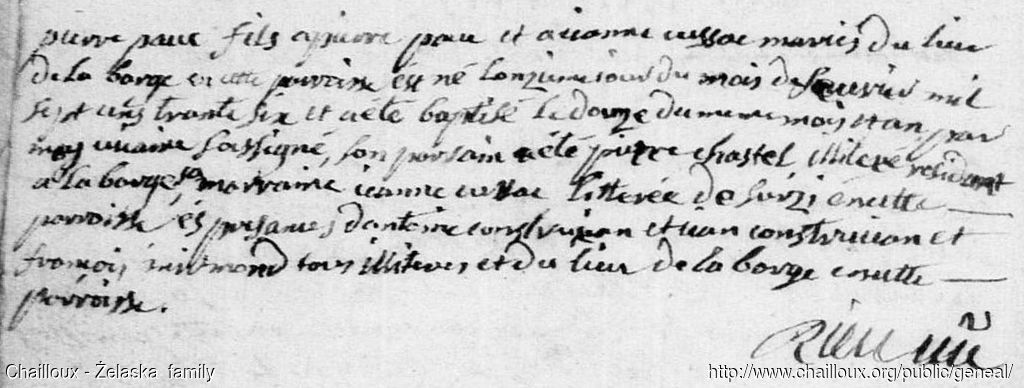 pierre paue fils a pierre paue et a ieanne cussac mariés du lieu
de la borge en cette parroisse és né lonzieme iour du mois de feuerier mil
sept cens trante six et a été baptisé le douze du meme mois et an par
moy vicaire soussigné, son parrain a été pierre chastel illiteré residant
a la borge, sa marraine ieanne cussac litterée de surzi en cette
parroisse, és presances dantoine et iean et
françois tous illiteres et du lieu de la borge en cette
parroisse.
Chailloux - Żelaska family
http://www.chailloux.org/public/geneal/